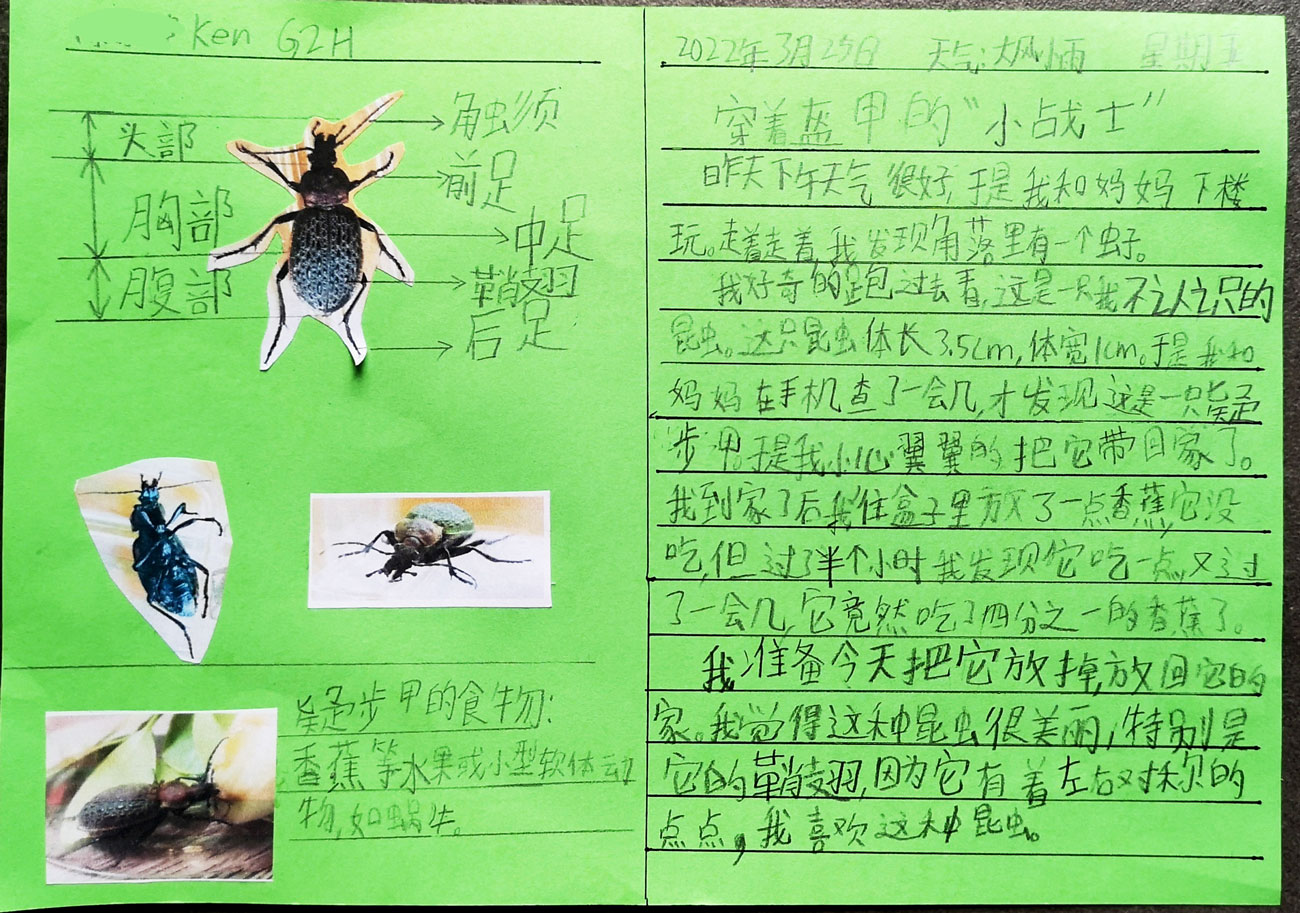 Ken G2H
头部
胸部
腹部
触须
前足
中足
鞘翅
后足
步甲的食物:
香蕉等水果或小型软体动
物,如蜗牛。
2022年3月25日 天气:大风小雨 星期五
穿着盔甲的“小战士”
昨天下午天气很好,于是我和妈妈下楼
玩。走着走着,我发现角落里有一个虫子。
我好奇的跑过去看,这是一只我不认识的
昆虫。这只昆虫体长3.5cm,体宽1cm。于是我和
妈妈在手机查了一会儿,才发现这是一只
步甲。于是我小心翼翼的把它带回家了。
我到家了后我往盒子里放了一点香蕉,它没
吃,但过了半个小时我发现它吃一点,又过
了一会儿,它竟然吃了四分之一的香蕉了。
我准备今天把它放掉,放回它的
家。我觉得这种昆虫很美丽,特别是
它的鞘翅,因为它有着左右对称的
点点,我喜欢这种昆虫。